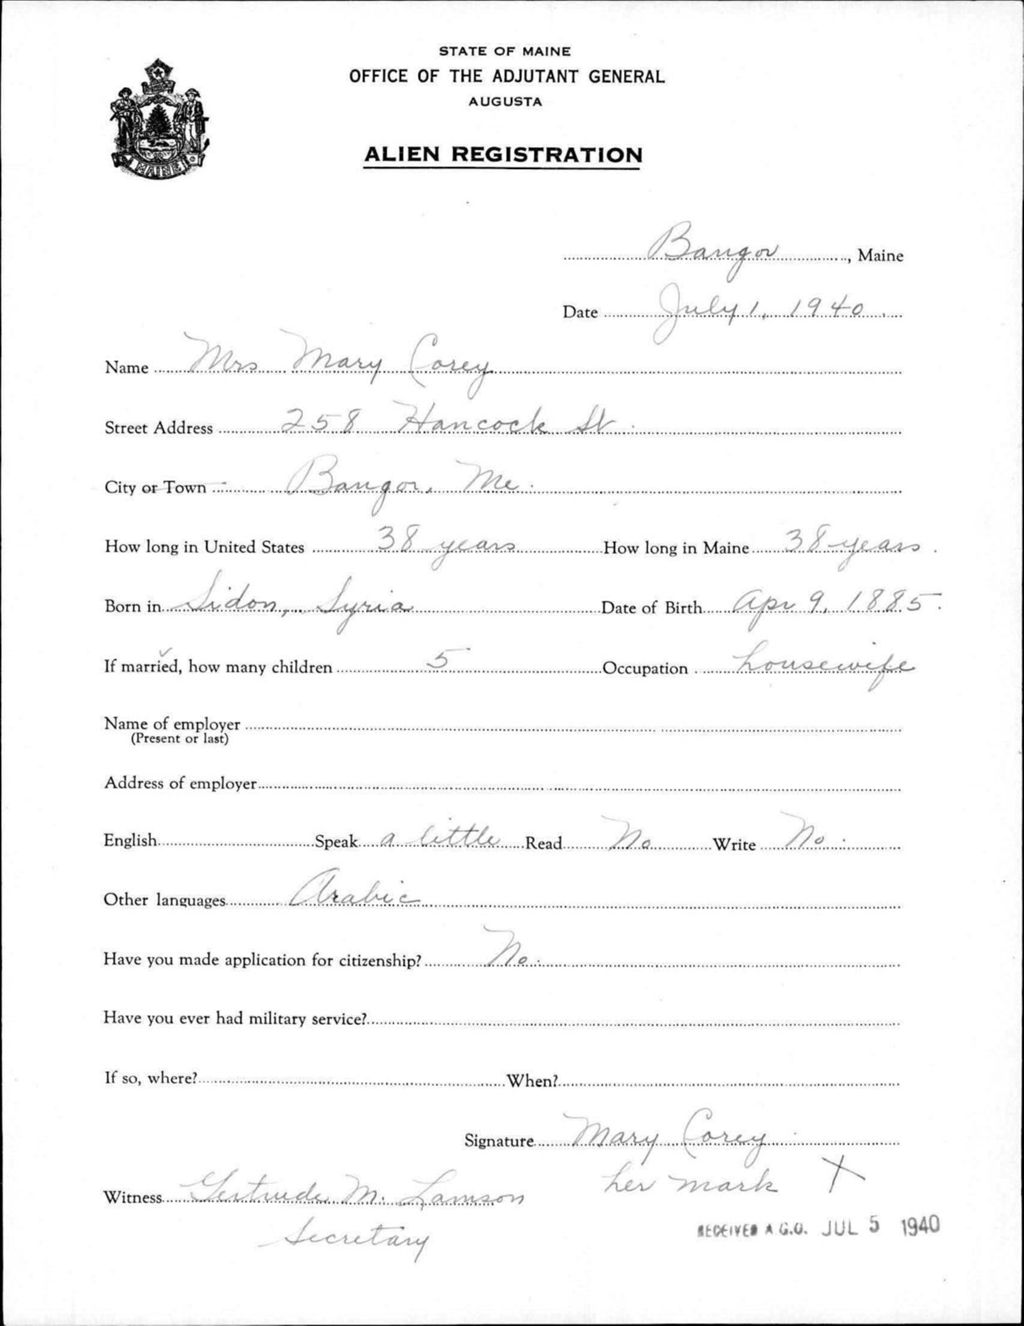 STATE OF MAINE
OFFICE OF THE ADJUTANT GENERAL
AUGUSTA
ALIEN REGISTRATION
MAINE
Bangor, Maine
Date July 1, 1940
Name Mrs Mary Corey
Street Address 258 Hancock St.
City or Town Bangor, Me.
How long in United States 38 years How long in Maine 38 years.
Born in Sidon, Syria Date of Birth Apr 9, 1885.
If married, how many children 5 Occupation housewife
Name of employer
(Present or last)
Address of employer
English Speak a little Read No Write No.
Other languages Arabic
Have you made application for citizenship? No.
Have you ever had military service?
If so, where? When?
Signature Mary Corey
her mark X
Witness Gertrude M. Lamson
Secretary
RECEIVED A.G.O. JUL 5 1940